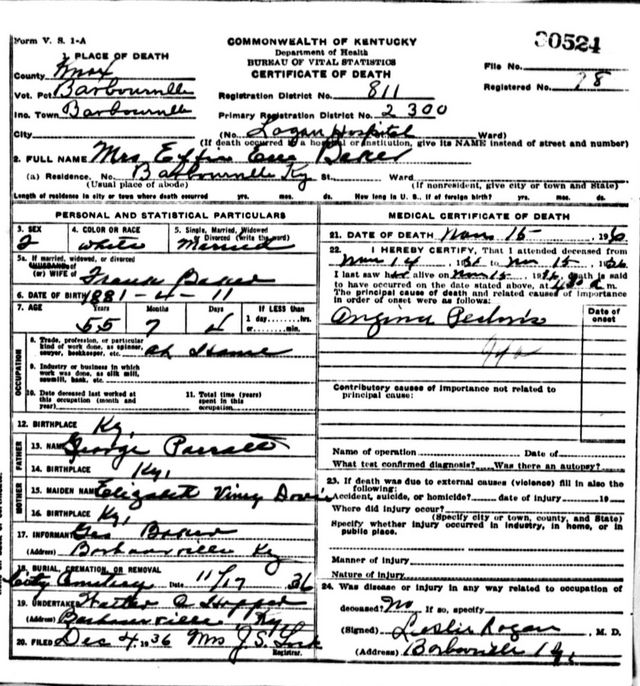 Form V. S. 1-A
COMMONWEALTH OF KENTUCKY
Department of Health
BUREAU OF VITAL STATISTICS
CERTIFICATE OF DEATH
30524
File No.
Registered No. 78
1. PLACE OF DEATH
County Knox
Vot. Pct. Barbourville
Inc. Town Barbourville
City
Registration District No. 811
Primary Registration District No. 2300
(No. Logan Hospital Ward)
(If death occurred in a hospital or institution, give its NAME instead of street and number)
2. FULL NAME Mrs Effie Baker
(a) Residence. No. Barbourville Ky St. Ward
(Usual place of abode) (If nonresident, give city or town and State)
Length of residence in city or town where death occurred yrs. mos. ds. How long in U. S., if of foreign birth? yrs. mos. ds.
PERSONAL AND STATISTICAL PARTICULARS
3. SEX
4. COLOR OR RACE
5. Single, Married, Widowed
or Divorced (write the word)
white Married
5a. If married, widowed, or divorced
HUSBAND of
(or) WIFE of Frank Baker
6. DATE OF BIRTH 1881-4-11
7. AGE Years Months Days If LESS than
1 day hrs.
or min.
55 7 4
OCCUPATION
8. Trade, profession, or particular
kind of work done, as spinner,
sawyer, bookkeeper, etc. at Home
9. Industry or business in which
work was done, as silk mill,
sawmill, bank, etc.
10. Date deceased last worked at
this occupation (month and
year)
11. Total time (years)
spent in this
occupation
12. BIRTHPLACE Ky.
FATHER
13. NAME George Parrott
14. BIRTHPLACE Ky.
MOTHER
15. MAIDEN NAME Elizabeth
16. BIRTHPLACE Ky.
17. INFORMANT Geo Baker
(Address) Barbourville Ky
18. BURIAL, CREMATION, OR REMOVAL
City Cemetery Date 11/17 36
19. UNDERTAKER Walter Hopper
(Address) Barbourville Ky
20. FILED Dec 4 1936 Mrs J. S.
Registrar.
MEDICAL CERTIFICATE OF DEATH
21. DATE OF DEATH Nov 15 19
22. I HEREBY CERTIFY, That I attended deceased
from Nov 14 to Nov 15 1936
I last saw her alive on Nov 15 1936 death is said
to have occurred on the date stated above, at m.
The principal cause of death and related causes of importance
in order of onset were as follows:
Date of
onset
Angina Pectoris
Contributory causes of importance not related to
principal cause:
Name of operation Date of
What test confirmed diagnosis? Was there an autopsy?
23. If death was due to external causes (violence) fill in also the
following:
Accident, suicide, or homicide? date of injury 19
Where did injury occur?
(Specify city or town, county, and State)
Specify whether injury occurred in industry, in home, or in
public place.
Manner of injury
Nature of injury
24. Was disease or injury in any way related to occupation of
deceased? No If so, specify
(Signed) Leslie Logan, M. D.
(Address) Barbourville Ky.